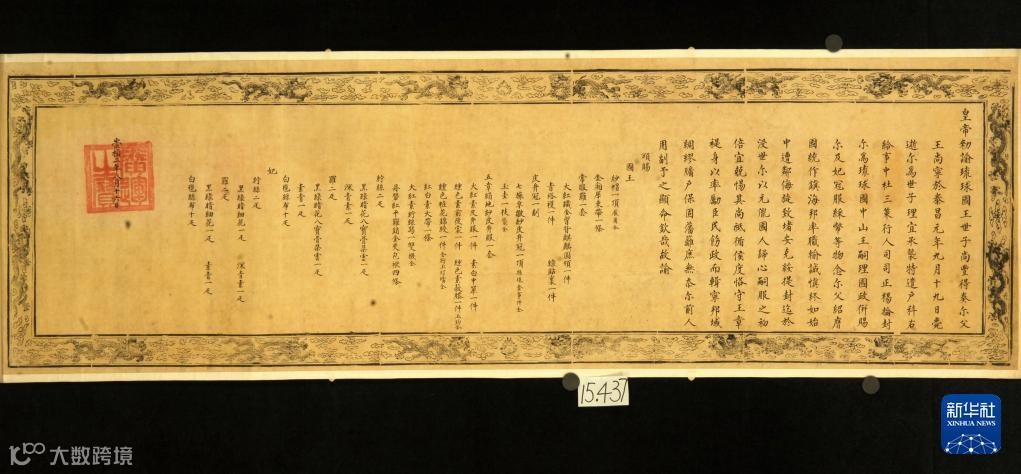 皇帝勅諭琉球國王世子尚豐得奏尔父
王尚寧於泰昌元年九月十九日薨
逝尔爲世子理宜承襲特遣户科右
給事中杜三策行人司司正楊掄封
尔爲琉球國中山王嗣理國政併賜
尔及妃冠服綵幣等物念尔父紹膺
國統作鎮海邦率職輸誠慎終如始
中遭鄰侮旋致堵安克綏提封迄於
浸世尔以元胤國人歸心嗣服之初
倍宜兢惕其尚祗循侯度恪守王章
禔身以率勵臣民飭政而輯寧邦域
綢繆牖户保固藩籬庶無忝尔前人
用副予之顯命欽哉故諭
頒賜
國王
紗帽一頂展角全
金廂犀束帶一條
常服羅一套
大紅織金胷背麒麟圓領一件
青褡𧞤一件 綠貼裏一件
皮弁冠一副
七旒皂皺紗皮弁冠一頂旒珠金事件全
玉圭一枝袋全
五章絹地紗皮弁服一套
大紅素皮弁服一件 素白中單一件
纁色素前後裳一件 纁色素蔽膝一件玉鈎全
纁色粧花錦綬一件金鈎玉玎璫全
紅白素大帶一條
大紅素紵絲舄一雙襪全
丹礬紅平羅銷金夾包袱四條
紵絲二疋
黑綠暗花八寶骨朶雲一疋
深青素一疋
羅二疋
黑綠暗花八寶骨朶雲一疋
青素一疋
白氁絲布十疋
妃
紵絲二疋
黑綠暗細花一疋 深青素一疋
羅二疋
黑綠暗細花一疋 青素一疋
白氁絲布十疋
崇禎二年八月十六日
廣運之寶
15.437
新华社
XINHUA NEWS
大数跨境